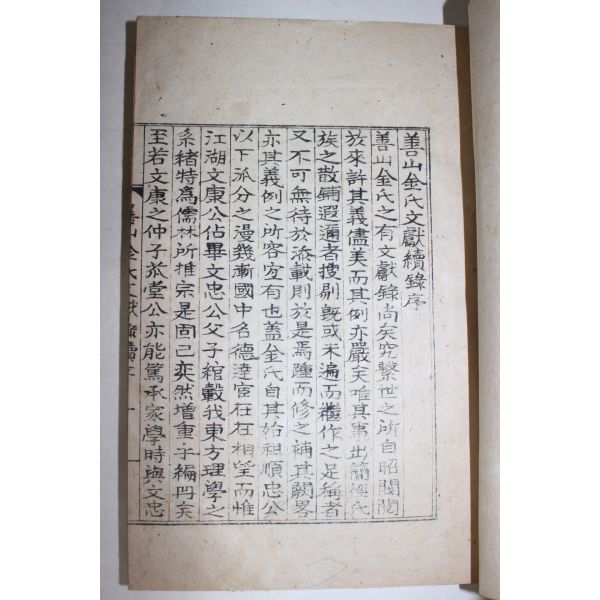 善山金氏文獻續錄序
善山金氏之有文獻錄尚矣究繫世之所自昭閥閱
於來許其義儘美而其例亦嚴矣唯其事出簡後氏
族之散鋪遐邇者搜剔旣或未遍而繼作之足稱者
又不可無待於添載則於是焉踵而修之補其闕畧
亦其義例之所容宜有也蓋金氏自其始祖順忠公
以下派分之漫幾漸國中名德達官在在相望而惟
江湖文康公佔畢文忠公父子綰轂我東方理學之
系緖特爲儒林所推宗是固已奕然增重於編門矣
至若文康之仲子 堂公亦能篤承家學時與文忠
善山金氏文獻 續序 一